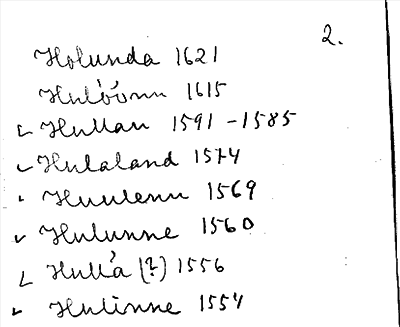 2.
Holunda 1621
Hulöönn 1615
Hullau 1591-1585
Hulaland 1574
Huulenn 1569
Hulunne 1560
Hullå (?) 1556
Hulinne 1554